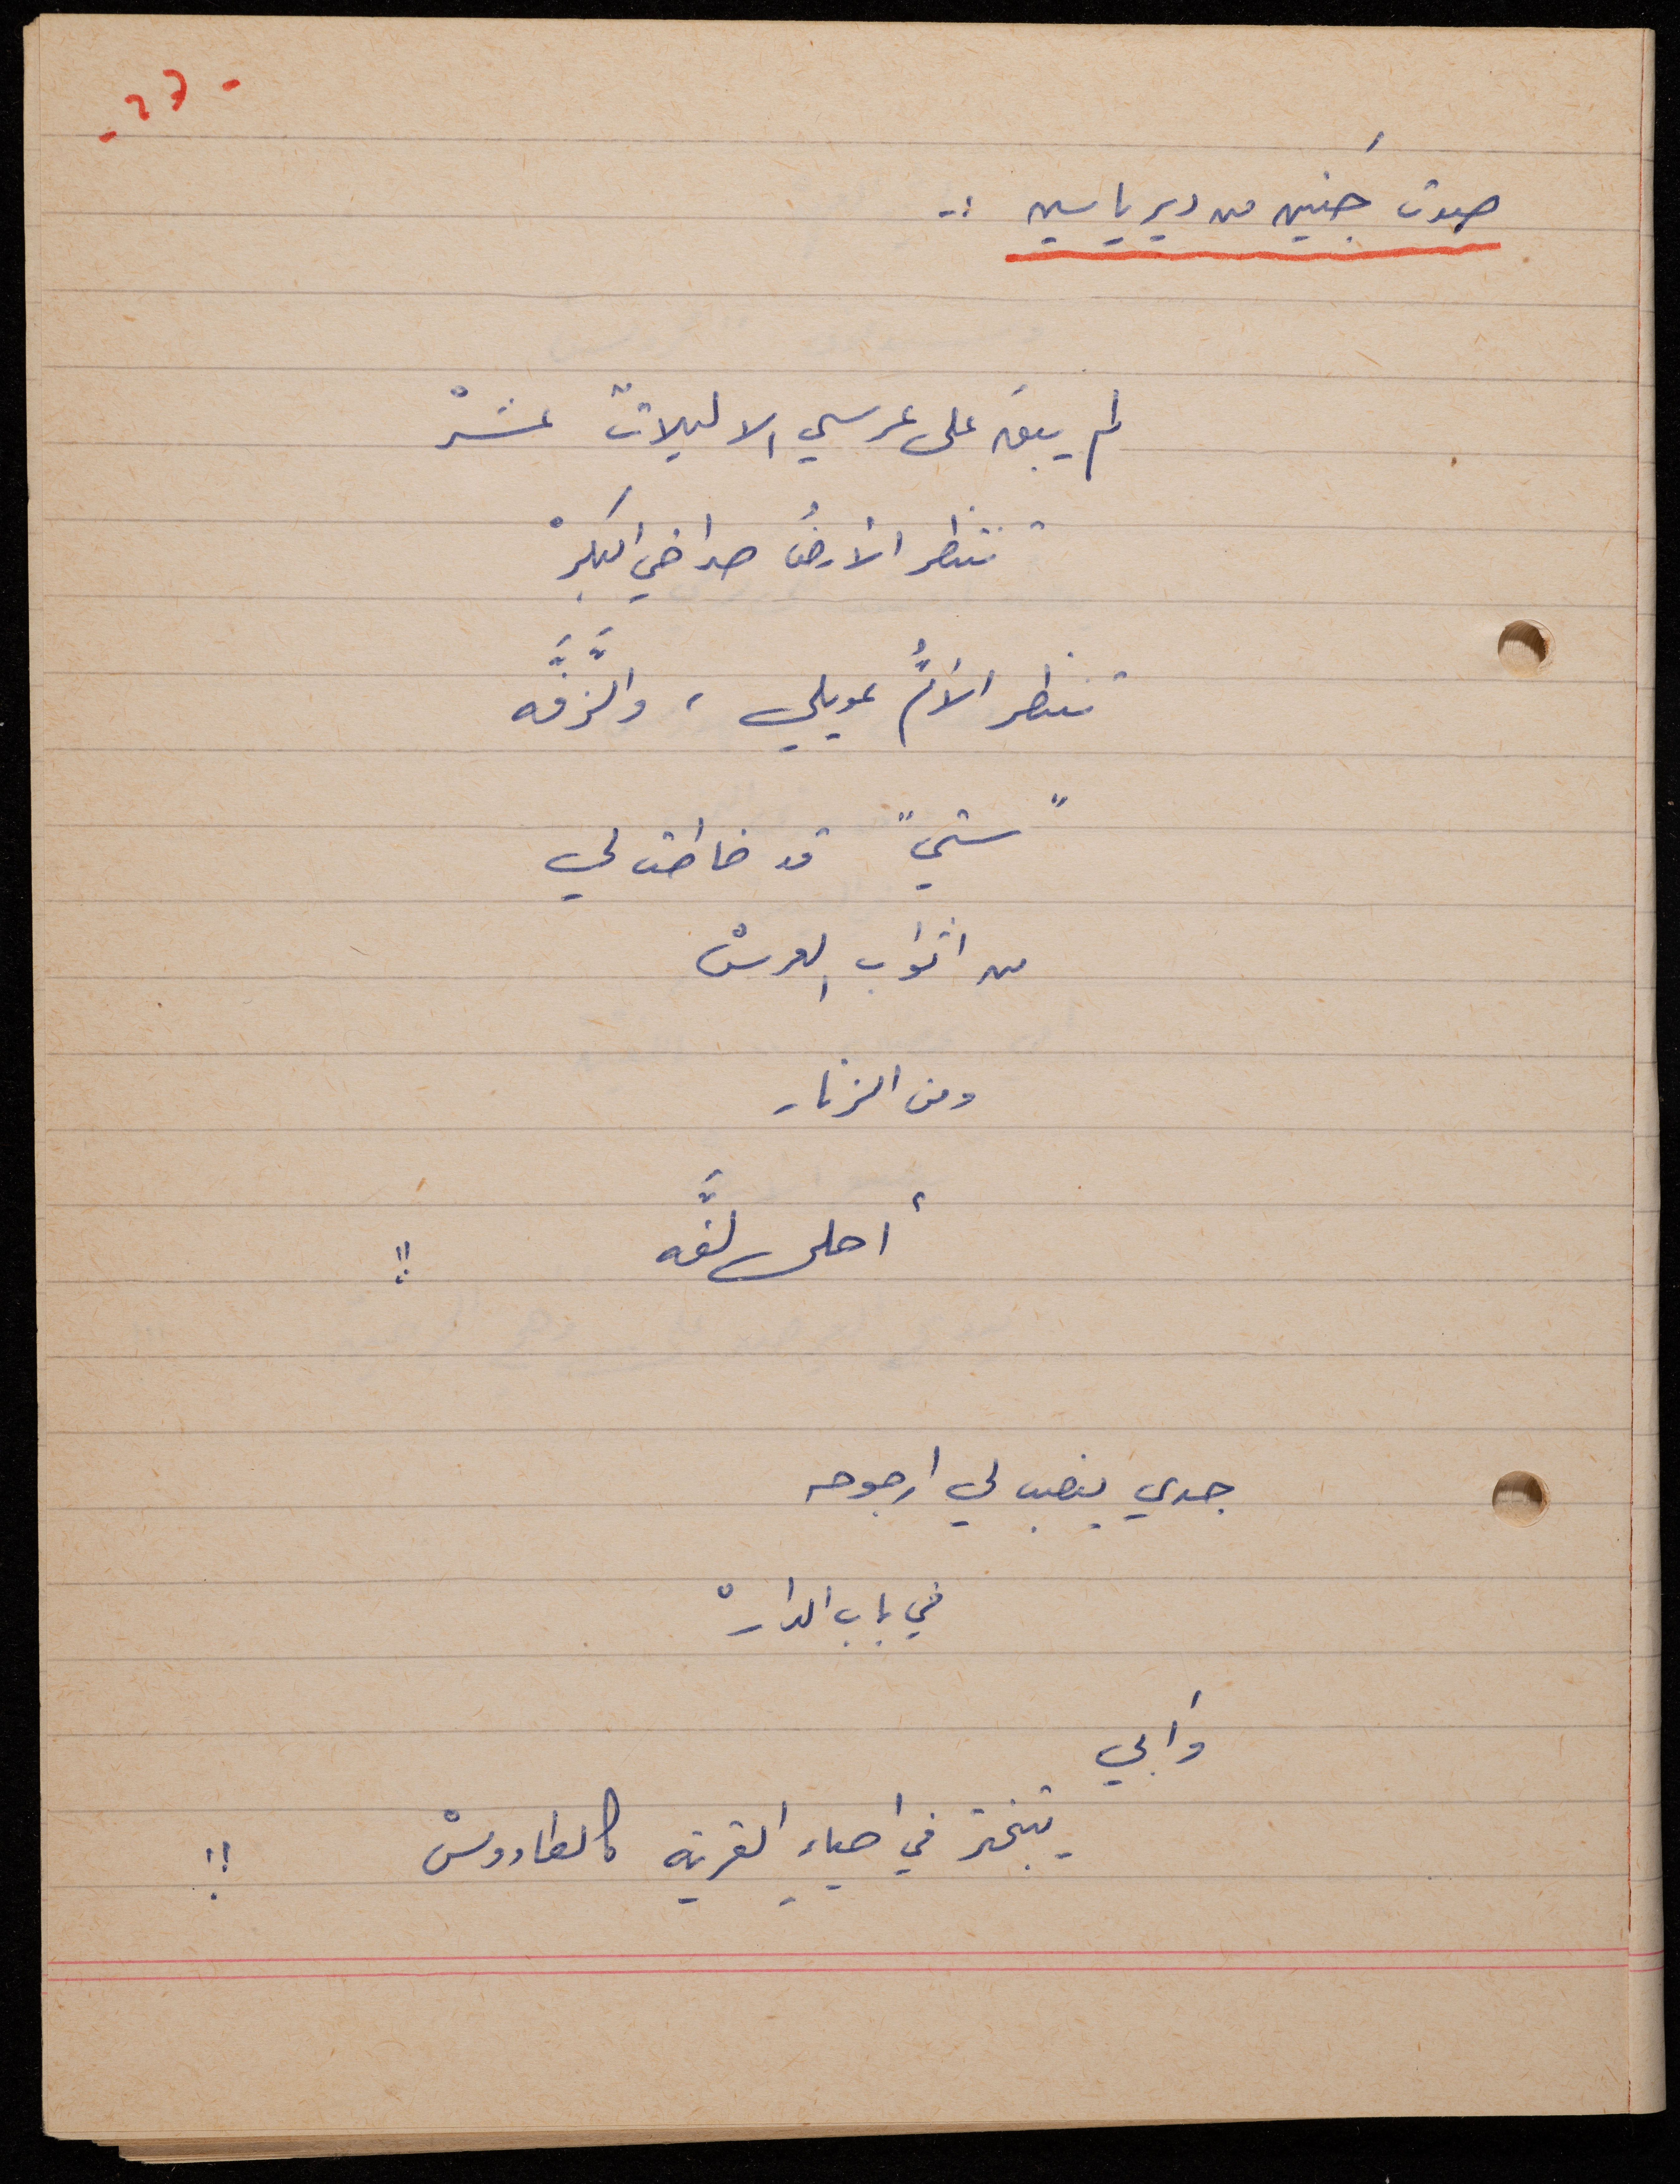 - ٢٦ -
صوت جَنين من دير ياسين :-
لم يبقَ على عرسي الا ليلاتٌ عشرْ
تنتظر الأرضُ صراخي البكرْ
تنتظر الأمُّ عويلي ، والزَّفَّه
"ستي" قد خاطت لي
من اثواب العرسْ
ومن الزنار
أحلى لفَّه !!
جدي ينصب لي ارجوحه
في باب الدارْ
وَابي
يتبختر في احياءِ القرية كالطاووسْ !!